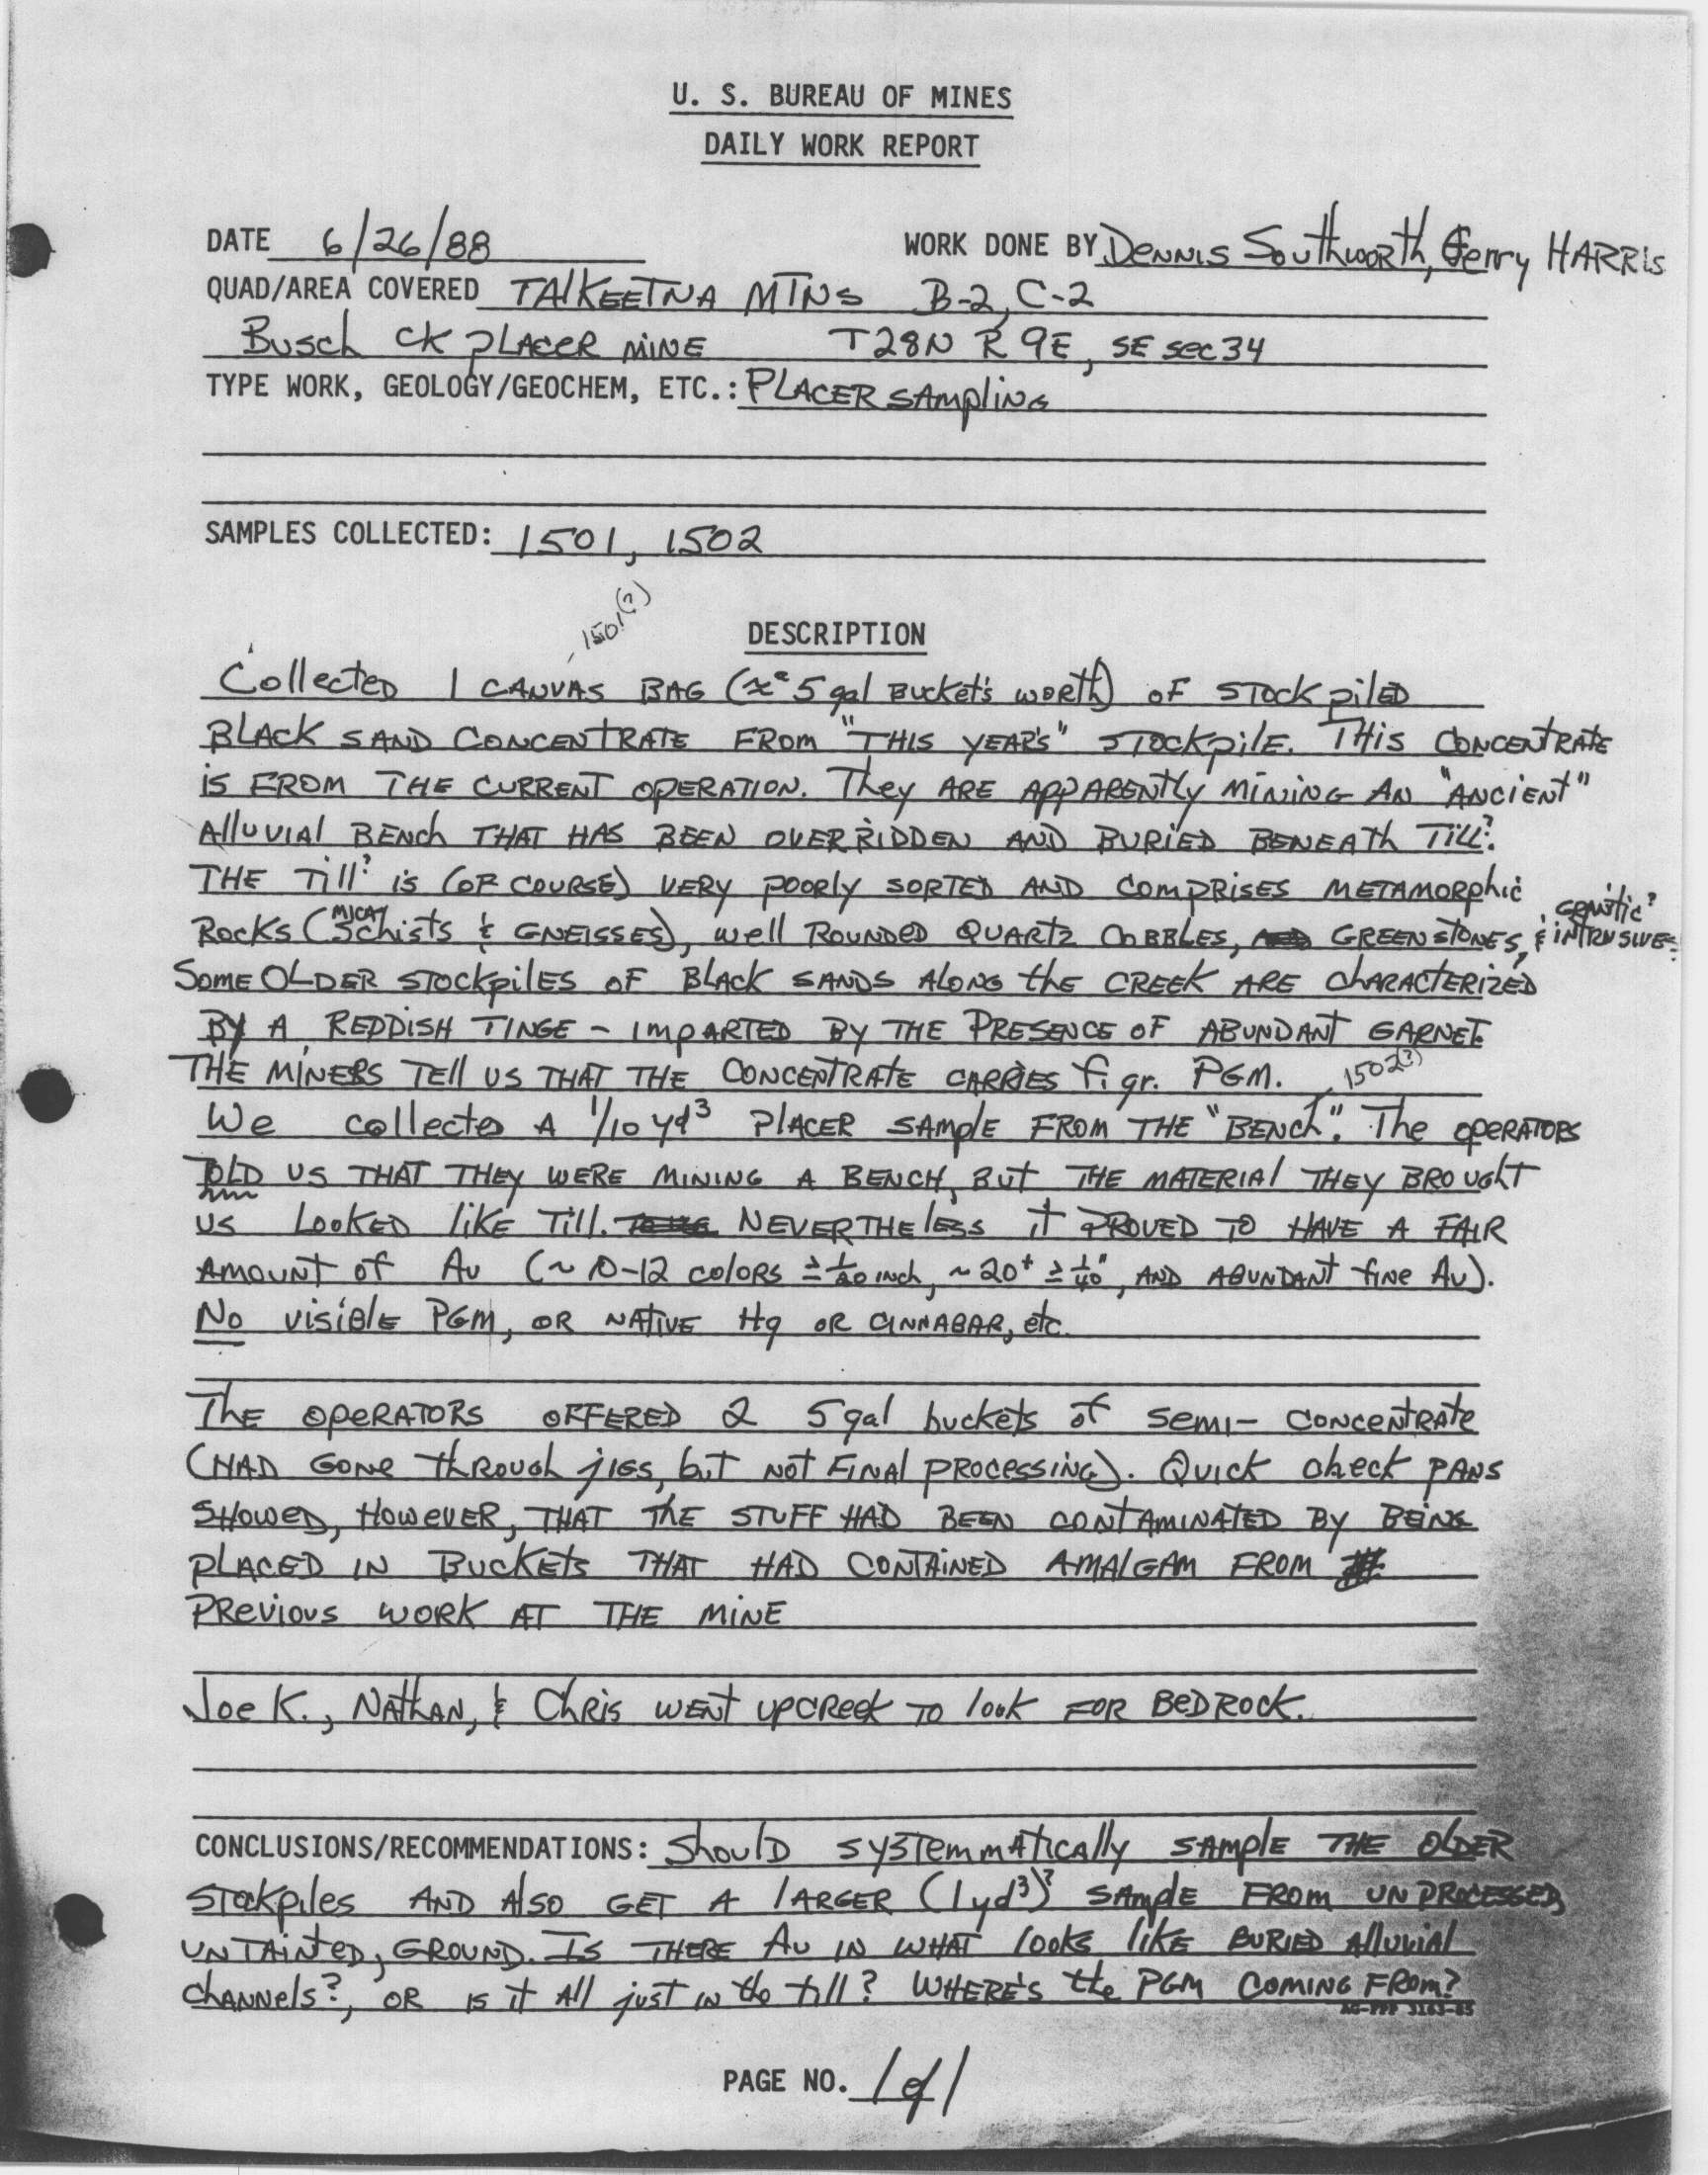 U. S. BUREAU OF MINES
DAILY WORK REPORT
DATE 6/26/88 WORK DONE BY Dennis Southworth, Gerry HARRIS
QUAD/AREA COVERED TALKEETNA MTNS B-2, C-2
Busch CK PLACER MINE T28N R 9E, SE sec 34
TYPE WORK, GEOLOGY/GEOCHEM, ETC.: PLACER SAMPLING
SAMPLES COLLECTED: 1501, 1502
1501(?)
DESCRIPTION
Collected 1 CANVAS BAG (≈ 5 gal BUCKET'S WORTH) OF STOCKPILED
BLACK SAND CONCENTRATE FROM "THIS YEAR'S" STOCKPILE. THIS CONCENTRATE
IS FROM THE CURRENT OPERATION. They ARE APPARENTLY MINING AN "ANCIENT"
ALLUVIAL BENCH THAT HAS BEEN OVERRIDDEN AND BURIED BENEATH TILL?.
THE TILL? IS (OF COURSE) VERY POORLY SORTED AND COMPRISES METAMORPHIC
ROCKS (MICA SCHISTS & GNEISSES), WELL ROUNDED QUARTZ COBBLES, GREENSTONES, & granitic? INTRUSIVES.
SOME OLDER STOCKPILES OF BLACK SANDS ALONG THE CREEK ARE CHARACTERIZED
BY A REDDISH TINGE - IMPARTED BY THE PRESENCE OF ABUNDANT GARNET.
THE MINERS TELL US THAT THE CONCENTRATE CARRIES f. gr. PGM. 1502(?)
We collected A 1/10 yd³ PLACER SAMPLE FROM THE "BENCH". The OPERATORS
TOLD US THAT THEY WERE MINING A BENCH, BUT THE MATERIAL THEY BROUGHT
US LOOKED LIKE TILL. NEVERTHELESS IT PROVED TO HAVE A FAIR
AMOUNT OF Au (~ 10-12 COLORS ≥ 1/20 INCH, ~ 20+ ≥ 1/40", AND ABUNDANT FINE Au).
NO VISIBLE PGM, OR NATIVE Hg OR CINNABAR, etc.
The OPERATORS OFFERED 2 5 gal buckets of SEMI- CONCENTRATE
(HAD GONE THROUGH JIGS, but NOT FINAL PROCESSING). QUICK check PANS
SHOWED, HOWEVER, THAT THE STUFF HAD BEEN CONTAMINATED BY BEING
PLACED IN BUCKETS THAT HAD CONTAINED AMALGAM FROM
PREVIOUS WORK AT THE MINE
Joe K., NATHAN, & CHRIS WENT UPCREEK TO look FOR BEDROCK.
CONCLUSIONS/RECOMMENDATIONS: SHOULD SYSTEMMATICALLY SAMPLE THE OLDER
STOCKPILES AND ALSO GET A LARGER (1 yd³)? SAMPLE FROM UNPROCESSED,
UNTAINTED, GROUND. IS THERE Au IN WHAT looks LIKE BURIED ALLUVIAL
CHANNELS?, OR IS IT All just IN the till? WHERE'S the PGM COMING FROM?
PAGE NO. 1 of 1